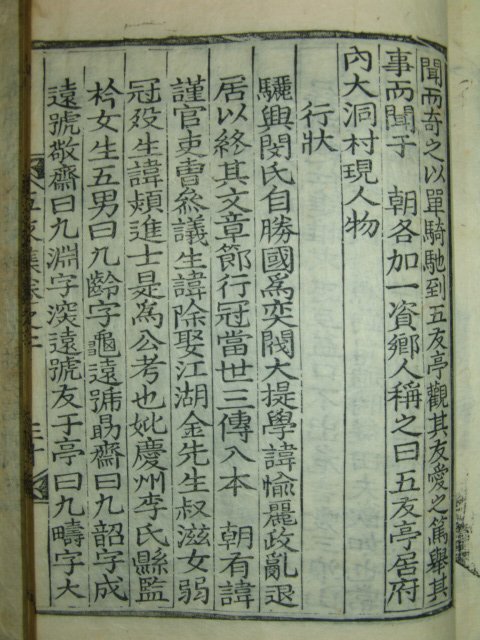 聞而奇之以單騎馳到五友亭觀其友愛之篤舉其
事而聞于　朝各加一資鄉人稱之曰五友亭居府
內大洞村現人物
行狀
驪興閔氏自勝國爲奕閥大提學諱愉麗政亂退
居以終其文章節行冠當世三傳入本　朝有諱
謹官吏曹參議生諱除娶江湖金先生叔滋女弱
冠歿生諱頍進士是爲公考也妣慶州李氏縣監
衿女生五男曰九齡字龜遠號勗齋曰九韶字成
遠號敬齋曰九淵字深遠號友于亭曰九疇字大
五友集卷之二